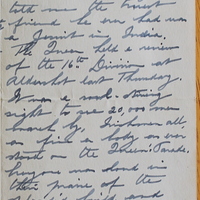 told me the truest
friend he ever had was
a Jesuit in India.
The Queen held a review
of the 16th Division at
Aldershot last Thursday.
It was a soul-stirring
sight to see 20,000 men
march by, Irishmen all
as fine a body as ever
stood on the Queen's Parade.
Everyone was loud in
their praise of the